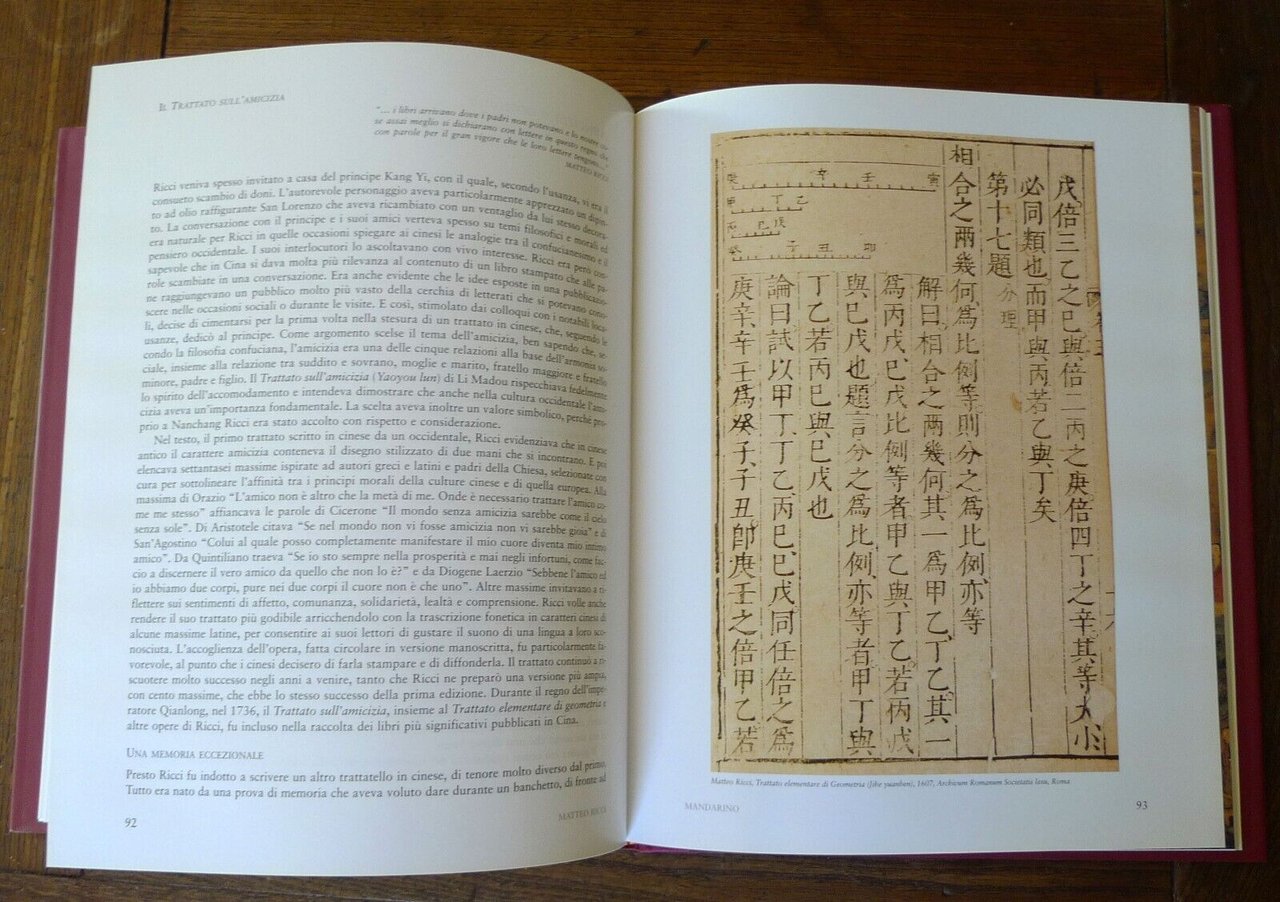 IL TRATTATO SULL'AMICIZIA
"… i libri arrivano dove i padri non potevano e le nostre co-
se assai meglio si dichiarano con lettere in questo regno che
con parole per il gran vigore che le loro lettere tengono…"
MATTEO RICCI
Ricci veniva spesso invitato a casa del principe Kang Yi, con il quale, secondo l'usanza, vi era il
consueto scambio di doni. L'autorevole personaggio aveva particolarmente apprezzato un dipin-
to ad olio raffigurante San Lorenzo che aveva ricambiato con un ventaglio da lui stesso decora-
to. La conversazione con il principe e i suoi amici verteva spesso su temi filosofici e morali ed
era naturale per Ricci in quelle occasioni spiegare ai cinesi le analogie tra il confucianesimo e il
pensiero occidentale. I suoi interlocutori lo ascoltavano con vivo interesse. Ricci era però con-
sapevole che in Cina si dava molta più rilevanza al contenuto di un libro stampato che alle pa-
role scambiate in una conversazione. Era anche evidente che le idee esposte in una pubblicazio-
ne raggiungevano un pubblico molto più vasto della cerchia di letterati che si potevano cono-
scere nelle occasioni sociali o durante le visite. E così, stimolato dai colloqui con i notabili loca-
li, decise di cimentarsi per la prima volta nella stesura di un trattato in cinese, che, seguendo le
usanze, dedicò al principe. Come argomento scelse il tema dell'amicizia, ben sapendo che, se-
condo la filosofia confuciana, l'amicizia era una delle cinque relazioni alla base dell'armonia so-
ciale, insieme alla relazione tra suddito e sovrano, moglie e marito, fratello maggiore e fratello
minore, padre e figlio. Il Trattato sull'amicizia (Yaoyou lun) di Li Madou rispecchiava fedelmente
lo spirito dell'accomodamento e intendeva dimostrare che anche nella cultura occidentale l'ami-
cizia aveva un'importanza fondamentale. La scelta aveva inoltre un valore simbolico, perché pro-
prio a Nanchang Ricci era stato accolto con rispetto e considerazione.
Nel testo, il primo trattato scritto in cinese da un occidentale, Ricci evidenziava che in cinese
antico il carattere amicizia conteneva il disegno stilizzato di due mani che si incontrano. E poi
elencava settantasei massime ispirate ad autori greci e latini e padri della Chiesa, selezionate con
cura per sottolineare l'affinità tra i principi morali della culture cinese e di quella europea. Alla
massima di Orazio "L'amico non è altro che la metà di me. Onde è necessario trattare l'amico co-
me me stesso" affiancava le parole di Cicerone "Il mondo senza amicizia sarebbe come il cielo
senza sole". Di Aristotele citava "Se nel mondo non vi fosse amicizia non vi sarebbe gioia" e di
San'Agostino "Colui al quale posso completamente manifestare il mio cuore diventa mio intimo
amico". Da Quintiliano traeva "Se io sto sempre nella prosperità e mai negli infortuni, come fac-
cio a discernere il vero amico da quello che non lo è?" e da Diogene Laerzio "Sebbene l'amico ed
io abbiamo due corpi, pure nei due corpi il cuore non è che uno". Altre massime invitavano a ri-
flettere sui sentimenti di affetto, comunanza, solidarietà, lealtà e comprensione. Ricci volle anche
rendere il suo trattato più godibile arricchendolo con la trascrizione fonetica in caratteri cinesi di
alcune massime latine, per consentire ai suoi lettori di gustare il suono di una lingua a loro sco-
nosciuta. L'accoglienza dell'opera, fatta circolare in versione manoscritta, fu particolarmente fa-
vorevole, al punto che i cinesi decisero di farla stampare e di diffonderla. Il trattato continuò a ri-
scuotere molto successo negli anni a venire, tanto che Ricci ne preparò una versione più ampia,
con cento massime, che ebbe lo stesso successo della prima edizione. Durante il regno dell'impe-
ratore Qianlong, nel 1736, il Trattato sull'amicizia, insieme al Trattato elementare di geometria e
altre opere di Ricci, fu incluso nella raccolta dei libri più significativi pubblicati in Cina.
UNA MEMORIA ECCEZIONALE
Presto Ricci fu indotto a scrivere un altro trattatello in cinese, di tenore molto diverso dal primo.
Tutto era nato da una prova di memoria che aveva voluto dare durante un banchetto, di fronte ad
92
MATTEO RICCI
戊、倍三乙之己、與倍二丙之庚、倍四丁之辛、其等大小
必同類也、而甲與丙、若乙與丁矣
第十七題 分理
相合之兩幾何、爲比例等、則分之爲比例、亦等
解曰、相合之兩幾何、其一爲甲乙丁乙、其一
爲丙戊己戊、比例等者、甲乙與丁乙、若丙戊
與己戊也、題言分之爲比例、亦等者、甲丁與
丁乙、若丙己與己戊也
論曰、試以甲丁丁乙、丙己己戊、同任倍之、爲
庚辛、辛壬、爲癸子、子丑、卽庚壬之倍甲乙、若
庚 辛 壬 寅
甲 丁 乙
丙 己 戊
癸 子 丑 卯
Matteo Ricci, Trattato elementare di Geometria (Jihe yuanben), 1607, Archivum Romanum Societatis Iesu, Roma
MANDARINO
93